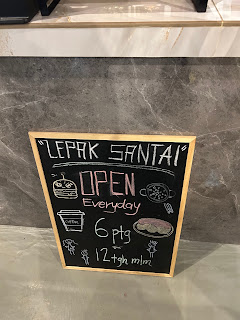 "LEPAK SANTAI"
OPEN
Everyday
6 ptg
12 tgh mlm